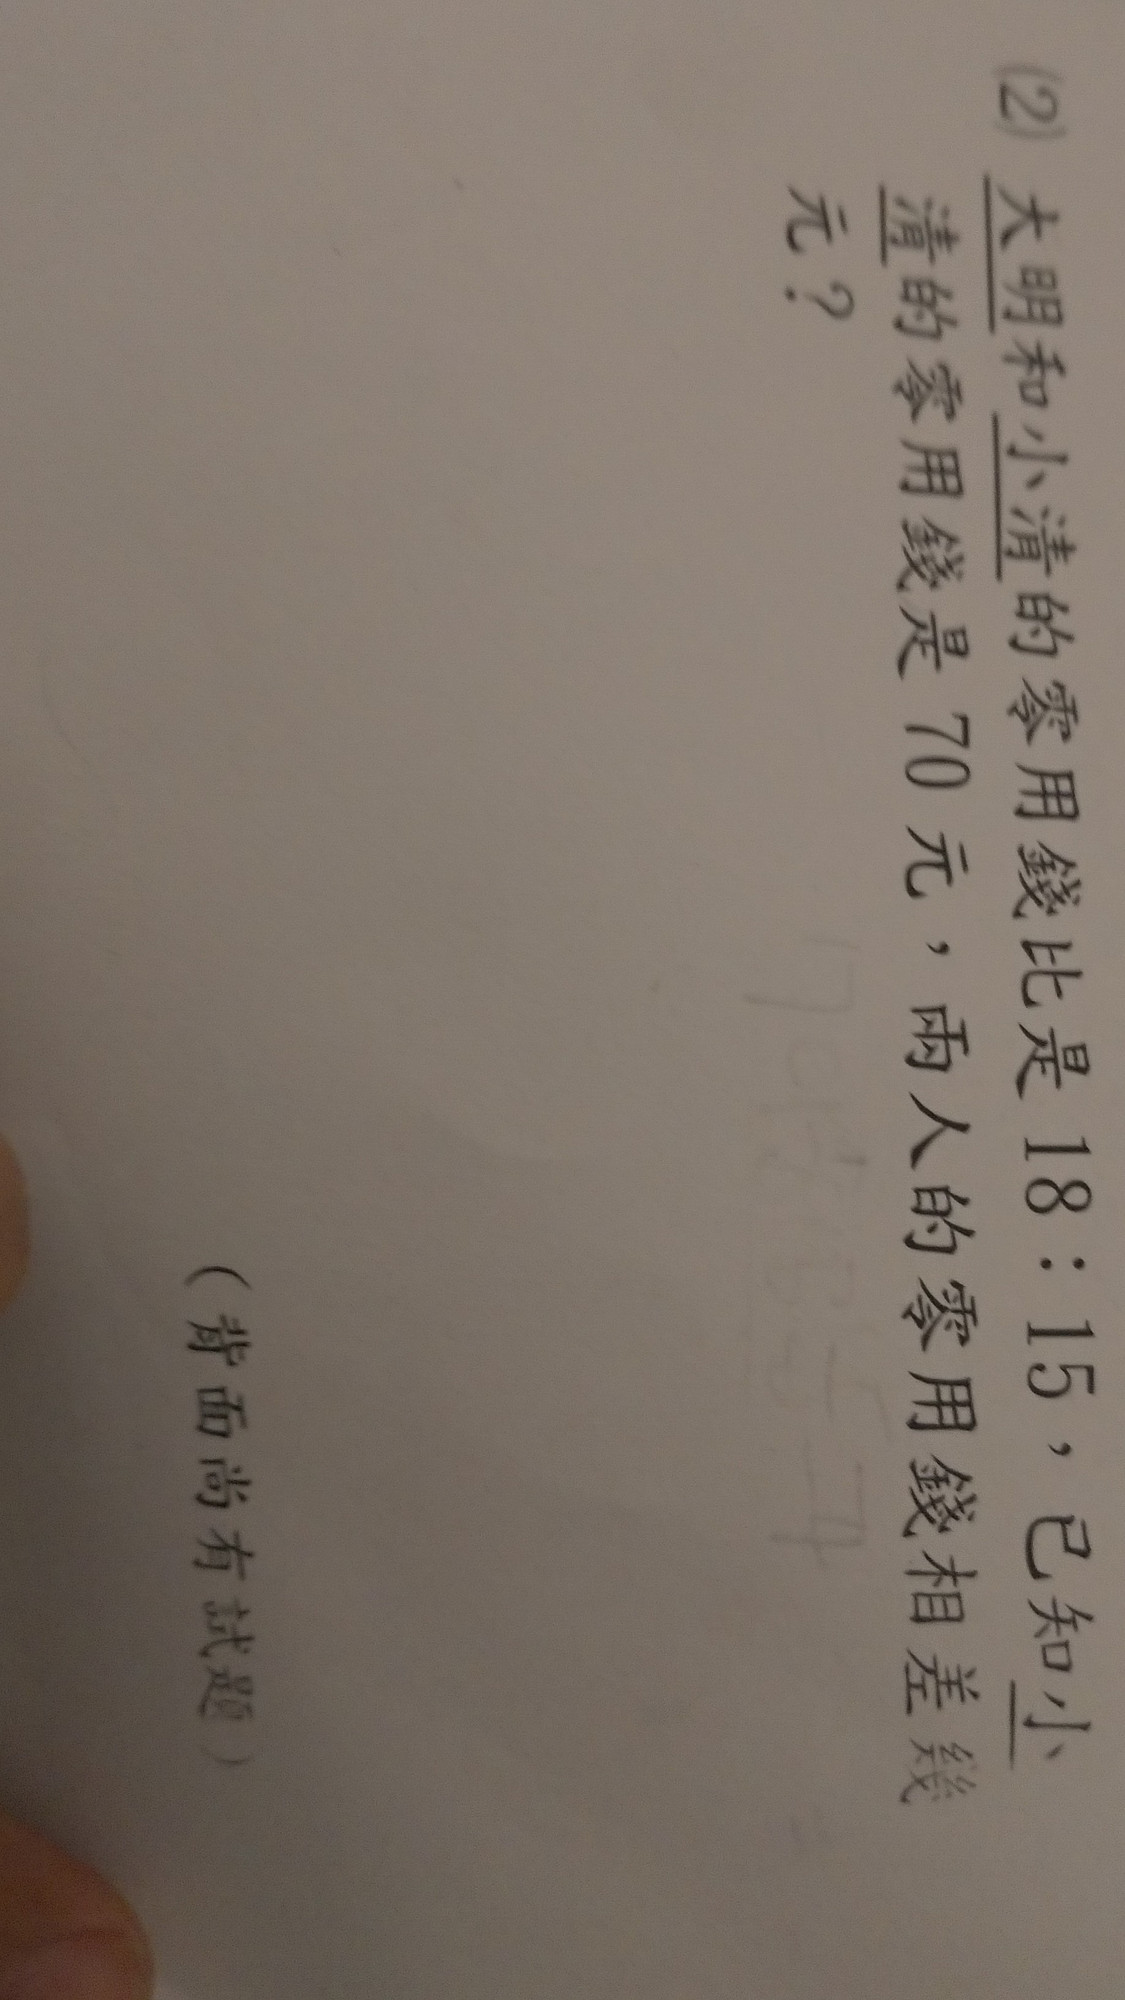 (2) 大明和小清的零用錢比是 18：15，已知小
清的零用錢是 70 元，兩人的零用錢相差幾
元？
（背面尚有試題）